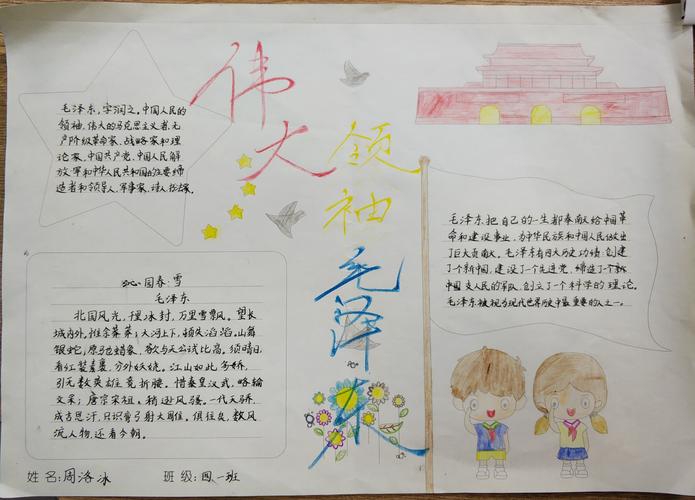 伟大
领袖
毛泽东
毛泽东,字润之。中国人民的
领袖,伟大的马克思主义者,无
产阶级革命家、战略家和理
论家,中国共产党、中国人民解
放军和中华人民共和国的主要缔
造者和领导人,军事家,诗人,书法家。
沁园春·雪
毛泽东
北国风光,千里冰封,万里雪飘。望长
城内外,惟余莽莽;大河上下,顿失滔滔。山舞
银蛇,原驰蜡象,欲与天公试比高。须晴日,
看红装素裹,分外妖娆。江山如此多娇,
引无数英雄竞折腰。惜秦皇汉武,略输
文采;唐宗宋祖,稍逊风骚。一代天骄,
成吉思汗,只识弯弓射大雕。俱往矣,数风
流人物,还看今朝。
毛泽东把自己的一生都奉献给中国革
命和建设事业,为中华民族和中国人民做出了
巨大贡献。毛泽东有四大历史功绩:创建
了个新中国,建设了个先进党,缔造了个新
中国人民的军队,创立了个科学的理论。
毛泽东被视为现代世界历史中最重要的人之一。
姓名:周洛冰 班级:四、一班